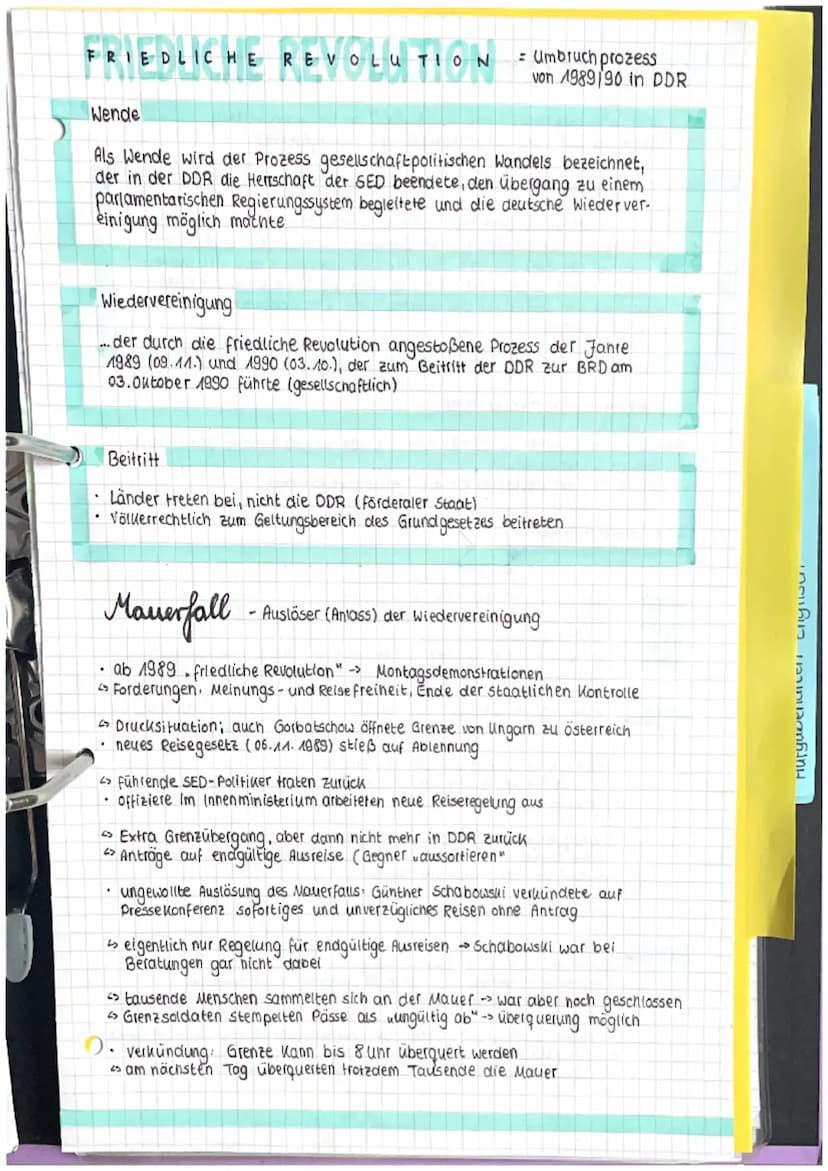 FRIEDLICHE REVOLUTION = Umbruchprozess
von 1989/90 in DDR
Wende
Als Wende wird der Prozess gesellschaftpolitischen Wandels bezeichnet,
der in der DDR die Herrschaft der SED beendete, den Übergang zu einem
parlamentarischen Regierungssystem begleitete und die deutsche Wiederver-
einigung möglich machte
Wiedervereinigung
... der durch die friedliche Revolution angestoßene Prozess der Jahre
1989 (09.11.) und 1990 (03.10.), der zum Beitritt der DDR zur BRD am
03. Oktober 1990 führte (gesellschaftlich)
Beitritt
• Länder treten bei, nicht die DDR (förderaler Staat)
• Völkerrechtlich zum Geltungsbereich des Grundgesetzes beitreten
Mauerfall - Auslöser (Anlass) der Wiedervereinigung
• ab 1989 „friedliche Revolution" -> Montagsdemonstrationen
↳ Forderungen: Meinungs- und Reisefreiheit, Ende der staatlichen Kontrolle
↳ Drucksituation; auch Gorbatschow öffnete Grenze von Ungarn zu Österreich
• neues Reisegesetz (06.11.1989) stieß auf Ablehnung
↳ führende SED-Politiker traten zurück
• Offiziere im Innenministerium arbeiteten neue Reiseregelung aus
↳ Extra Grenzübergang, aber dann nicht mehr in DDR zurück
↳ Anträge auf endgültige Ausreise (Gegner „aussortieren"
• ungewollte Auslösung des Mauerfalls: Günther Schabowski verkündete auf
Pressekonferenz sofortiges und unverzügliches Reisen ohne Antrag
↳ eigentlich nur Regelung für endgültige Ausreisen -> Schabowski war bei
Beratungen gar nicht dabei
↳ tausende Menschen sammelten sich an der Mauer -> war aber noch geschlossen
↳ Grenzsoldaten stempelten Pässe als „ungültig ab" -> Überquerung möglich
• Verkündung: Grenze kann bis 8 Uhr überquert werden
↳ am nächsten Tag überquerten trotzdem Tausende die Mauer
Englisch